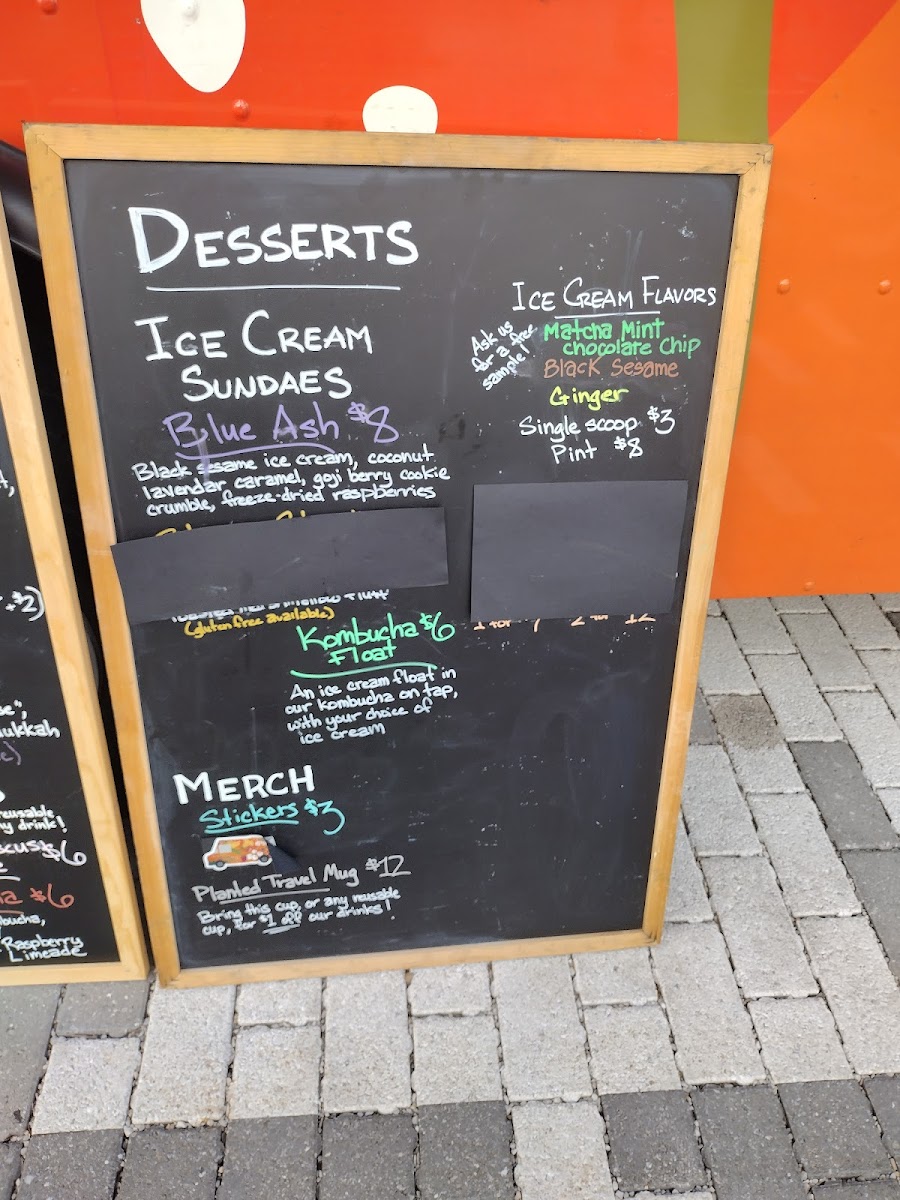 DESSERTS
ICE CREAM
SUNDAES
Blue Ash $8
Black sesame ice cream, coconut
lavendar caramel, goji berry cookie
crumble, freeze-dried raspberries
(gluten free available)
Kombucha $6
Float
An ice cream float in
our kombucha on tap,
with your choice of
ice cream
MERCH
Stickers $3
Planted Travel Mug $12
Bring this cup, or any reusable
cup, for $1 off our drinks!
ICE CREAM FLAVORS
Ask us
for a free
sample!
Matcha Mint
chocolate Chip
Black Sesame
Ginger
Single scoop $3
Pint $8
+$2)
ukkah
reusable
y drink!
$6
$6
bucha,
Raspberry
Limeade